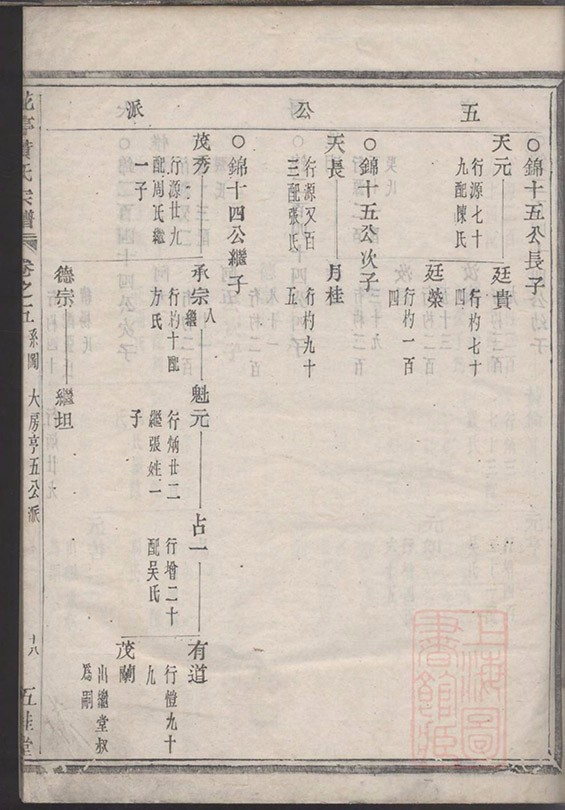 五公派
○錦十五公長子
天元
行源七十
九配陳氏
廷貴
行杓七十
四
廷榮
行杓一百
四
○錦十五公次子
天長
行源又百
三配張氏
月桂
行杓九十
五
○錦十四公繼子
茂秀
行源廿九
配周氏繼
一子
承宗
入繼
行杓十配
方氏
魁元
行炳廿二
繼張姓一
子
占一
行增二十
配吳氏
有道
行愷九十
九
茂蘭
出繼堂叔
爲嗣
德宗
繼坦
花亭黃氏宗譜
卷之五系圖
大房亨五公派
十八
五桂堂
上海圖書館藏